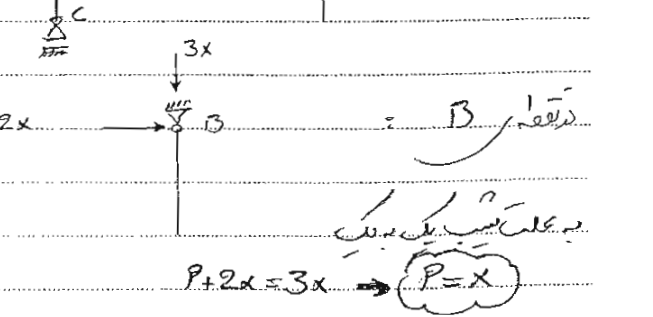 C
3x
2x B
در نقطه B :
به علت شیب یک به یک
P+2x=3x → P=x